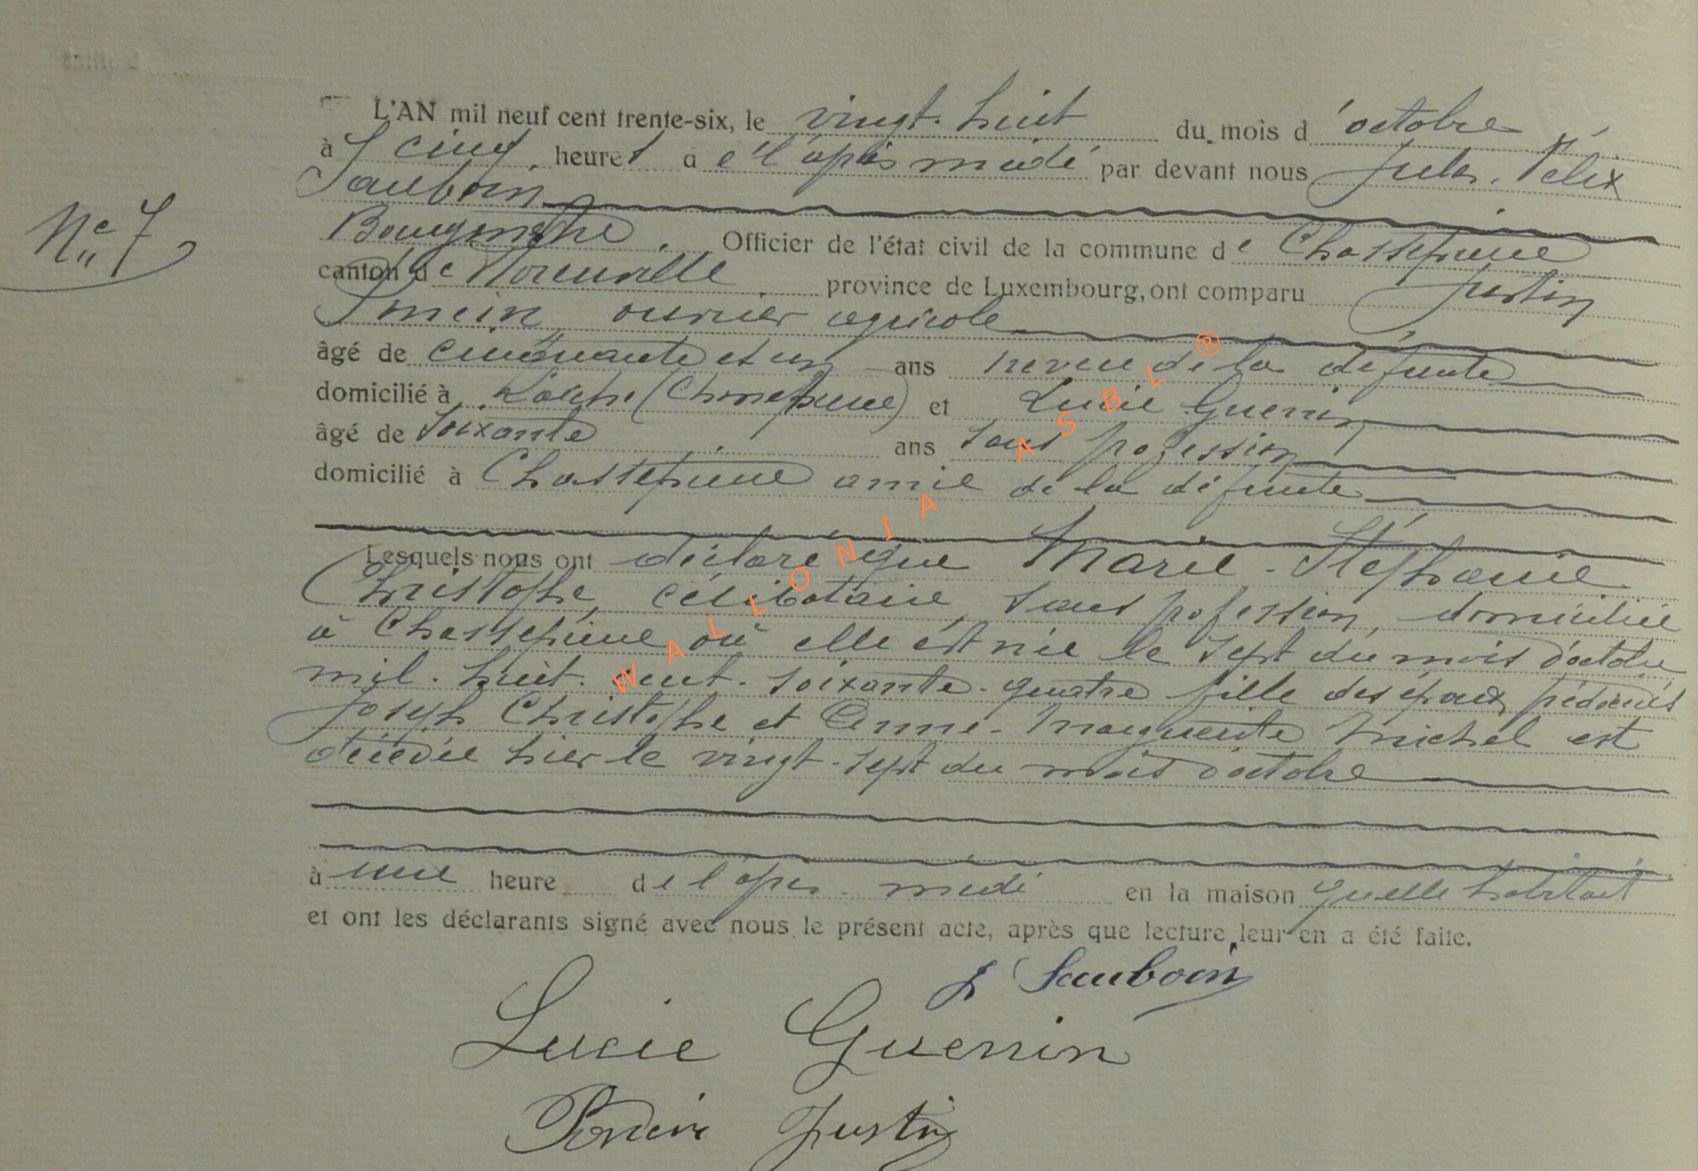 L'AN mil neuf cent trente-six, le vingt-huit du mois d'octobre
à cinq heures de l'après midi par devant nous Jules, Félix
Sauboin
Bourgmestre, Officier de l'état civil de la commune de Chassepierre
canton de Florenville province de Luxembourg, ont comparu Justin
ouvrier agricole
âgé de cinquante et un ans neveu de la défunte
domicilié à Laiche (Chassepierre) et Lucie Guerin
âgé de soixante ans sans profession
domicilié à Chassepierre amie de la défunte
Nº 7
Lesquels nous ont déclaré que Marie-Stéphanie
Christophe, célibataire, sans profession, domiciliée
à Chassepierre où elle est née le sept du mois d'octobre
mil-huit-cent-soixante-quatre fille des époux prédécédés
Joseph Christophe et Anne-Marguerite Michel est
décédée hier le vingt-sept du mois d'octobre
à une heure de l'après-midi en la maison qu'elle habitait
et ont les déclarants signé avec nous le présent acte, après que lecture leur en a été faite.
J Sauboin
Lucie Guerrin
Justin
WALLONIA ASBL ®